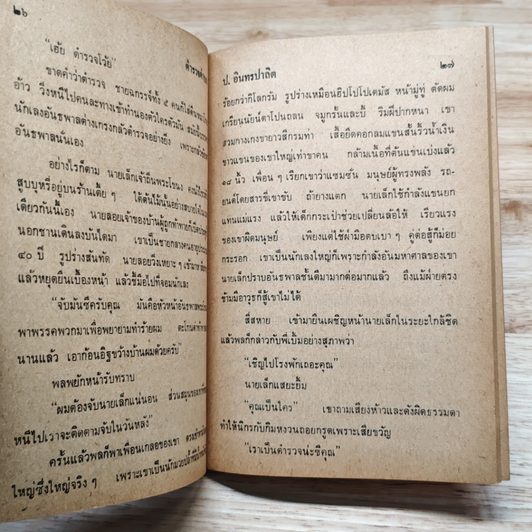 ๒๖
"เฮ้ย ตำรวจโว้ย"
ขาดคำว่าตำรวจ ชายฉกรรจ์ทั้ง ๕
อ้าว วิ่งหนีไปคนละทางเข้าทำนองตัวใครตัวมัน
นักเลงอันธพาลต่างเกรงกลัวตำรวจอย่างยิ่ง เพราะ
อันธพาลนั่นเอง
อย่างไรก็ตาม นายเล็กเจ้าถิ่นพระโขนง
สูบบุหรี่อยู่บนร้านเตี้ย ๆ ได้ต้นไม้นั่นอย่าง
เดียวกันนี้เอง นายลอยเจ้าของบ้านผู้ถูกท้าทาย
นอกชานเดินลงบันไดมา เขาเป็นชายกลางคน
๔๐ ปี รูปร่างสันทัด นายลอยวิ่งเหยาะ ๆ เข้ามา
แล้วหยุดยืนเบื้องหน้า แล้วชี้มือไปที่จอมนักเลง
"จับมันซีครับคุณ มันคือหัวหน้าอันธพาล
พาพรรคพวกมาเพื่อพยายามทำร้ายผม
นานแล้ว เอาก้อนอิฐขว้างบ้านผมด้วยครับ"
พลพยักหน้ารับทราบ
"ผมต้องจับนายเล็กแน่นอน ส่วนสมุน
หนีไปเวาจะติดตามจับในวันหลัง"
ครั้นแล้วพลก็พาเพื่อนเกลอของเขา
ใหญ่ซึ่งใหญ่จริง ๆ เพราะเขาเป็นนักมวย
ป. อินทรปาลิต
๒๗
ร้อยกว่ากิโลกรัม รูปร่างเหมือนฮิปโปโปเตมัส หน้ามู่ทู่ ตัดผม
เกรียนนัยน์ตาโปนถลน จมูกรั้นและบี้ ริมฝีปากหนา เขา
สวมกางเกงขายาวสีกรมท่า เสื้อยืดคอกลมแขนสั้นริ้วน้ำเงิน
ขาวแขนของเขาใหญ่เท่าขาคน กล้ามเนื้อที่ต้นแขนเบ่งแล้ว
๑๘ นิ้ว เพื่อน ๆ เรียกเขาว่าแซมซั่น มนุษย์ผู้ทรงพลัง รถ-
ยนต์โดยสารที่เขาขับ ถ้ายางแตก นายเล็กใช้กำลังแขนยก
แทนแม่แรง แล้วให้เด็กกระเป๋าช่วยเปลี่ยนล้อให้ เรี่ยวแรง
ของเขาผิดมนุษย์ เพียงแต่ใช้ฝ่ามือตบเบา ๆ คู่ต่อสู้ก็ม่อย
กระรอก เขาเป็นนักเลงใหญ่ก็เพราะกำลังอันมหาศาลของเขา
นายเล็กปราบอันธพาลชั้นดีมามากต่อมากแล้ว ถึงแม้ฝ่ายตรง
ข้ามมีอาวุธก็สู้เขาไม่ได้
สี่สหาย เข้ามายืนเผชิญหน้านายเล็กในระยะใกล้ชิด
แล้วพลก็กล่าวกับพี่เบิ้มอย่างสุภาพว่า
"เชิญไปโรงพักเถอะคุณ"
นายเล็กแสยะยิ้ม
"คุณเป็นใคร" เขาถามเสียงห้าวและดังผิดธรรมดา
ทำให้นิกรกับกิมหงวนถอยกรูดเพราะเสียขวัญ
"เราเป็นตำรวจน่ะซีคุณ"